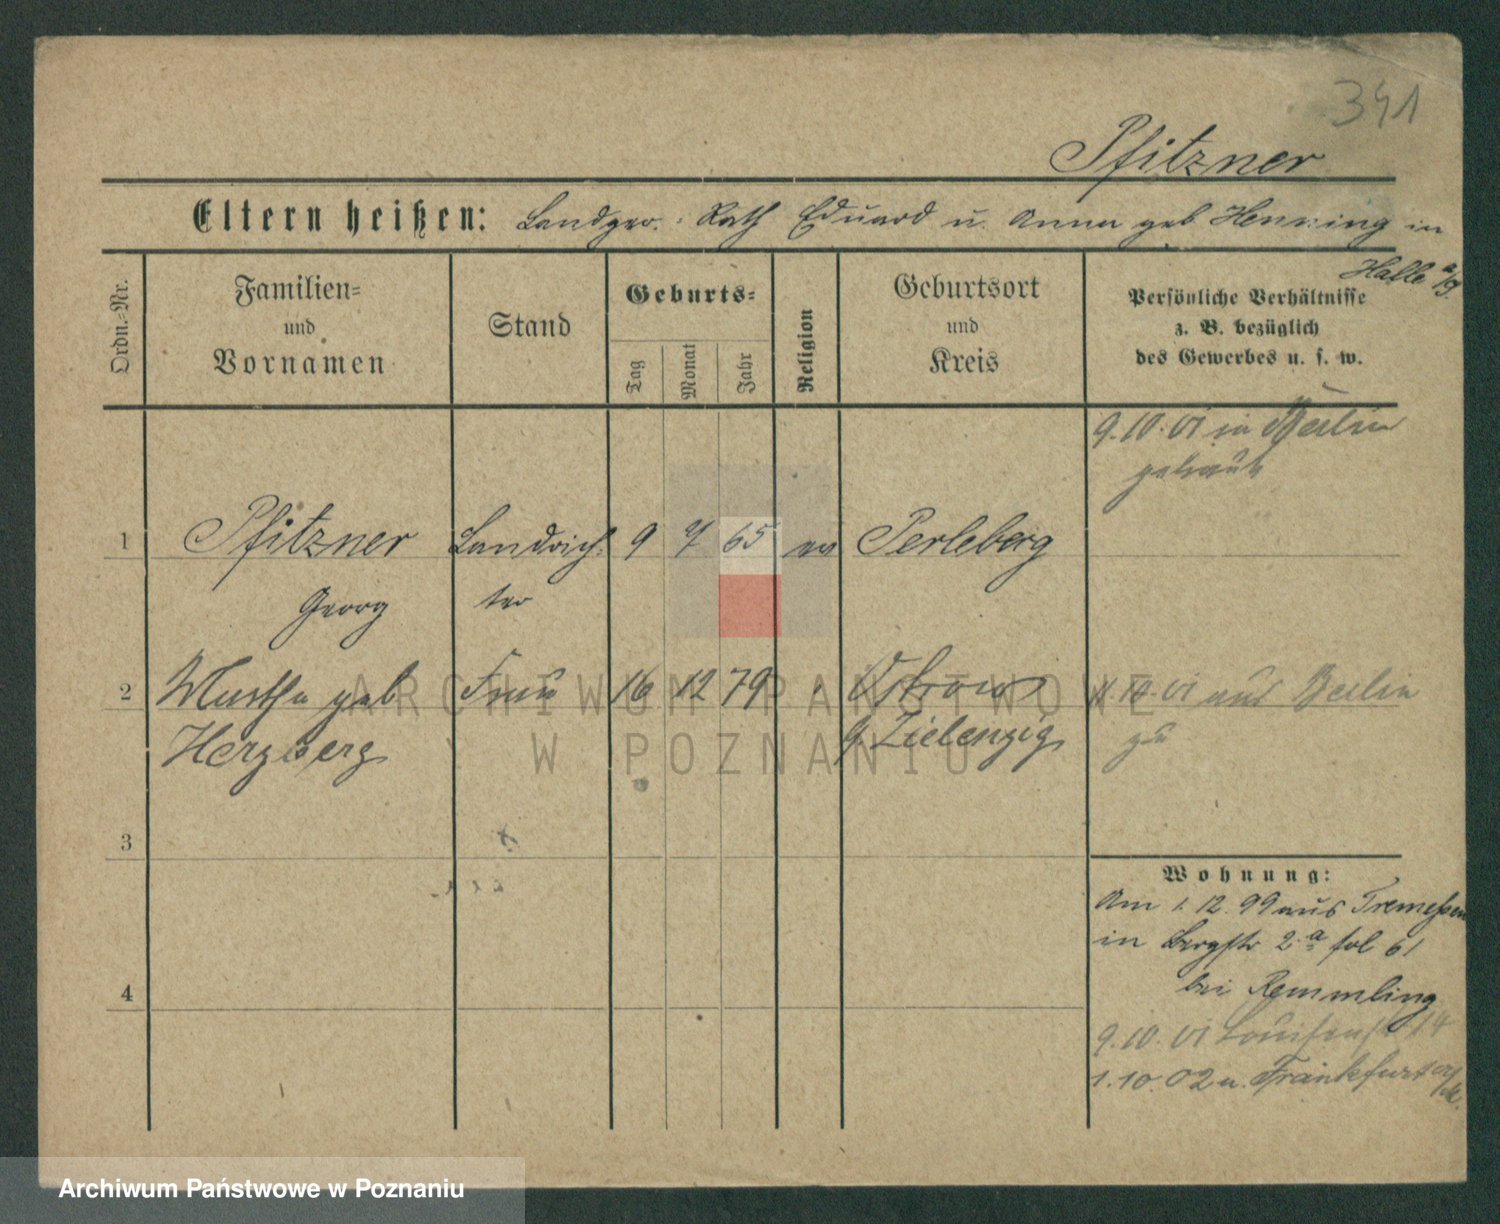 341
Pfitzner
Eltern heißen: Landger. Rath Eduard u. Anna geb Henning in
Halle a/S.
Ordn.-Nr.
Familien- und Vornamen
Stand
Geburts-
Tag
Monat
Jahr
Religion
Geburtsort und Kreis
Persönliche Verhältnisse
z. B. bezüglich
des Gewerbes u. s. w.
9.10.01 in Berlin
getraut
1 Pfitzner Landrich- 9 7 65 ev Perleberg
Georg ter
2 Martha geb Frau 16 12 79 Ostrow 10.01 aus Berlin
Herzberg Zielenzig zu
3
4
Wohnung:
Am 1. 12. 99 aus Tremessen
in Bergstr 2a fol 61
bei Remmling
9.10.01 Louisenstr 14
1.10.02 u. Frankfurt a/M.
ARCHIWUM PAŃSTWOWE
W POZNANIU
Archiwum Państwowe w Poznaniu